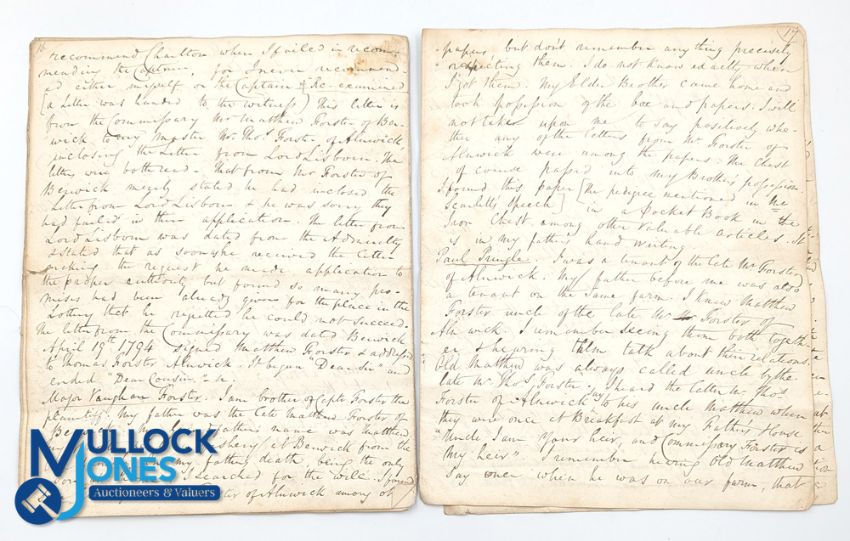 16
recommend Charlton when I failed in recom-
mending the Captain, for I never recommend-
ed either myself or the Captain & Re-examined
(a Letter was handed to the witness) This letter is
from the Commissary Mr Matthew Forster of Ber-
wick to my Master Mr Thos. Forster of Alnwick
inclosing the Letter from Lord Lisborn. The
letters were both read. That from Mr Forster of
Berwick merely stated he had inclosed the
Letter from Lord Lisborn & he was sorry they
had failed in their application. The letter from
Lord Lisborn was dated from the Admiralty
& stated that as soon as he received the letter
making the request he made application to
the proper authority but found so many pro-
mises had been already given for the place in the
Lottery that he regretted he could not succeed.
The letter from the Commissary was dated Berwick
April 19th 1794 signed Matthew Forster & addressed
to Thomas Forster Alnwick. It began "Dear Sir" and
ended "Dear Cousin" &c
Major Vaughan Forster. I am brother of Capt. Forster the
plaintiff. My father was the late Matthew Forster of
father's name was Matthew
fishery at Berwick from the
my father's death, being the only
I searched for the will. I found
Forster of Alnwick among ot/
MULLOCK
JONES
Auctioneers & Valuers
17
papers but don't remember any thing precisely
respecting them. I do not know exactly when
I got them. My Elder Brother came home and
took possession of the box and papers. I will
not take upon me to say positively whe-
ther any of the letters from Mr Forster of
Alnwick were among the papers. The Chest
of course passed into my Brothers possession.
I found this paper [the pedigree mentioned in Mr
Scarlett's Speech] in a Pocket Book in the
Iron Chest among other valuable articles. It
is in my father's hand writing
Paul Pringle. I was a tenant of the late Mr Forster
of Alnwick. My father before me was also
a tenant on the same farm. I knew Matthew
Forster uncle of the late Mr Forster of
Alnwick. I remember seeing them both togeth-
er & hearing them talk about their relations.
Old Matthew was always called uncle by the
late Mr Thos. Forster. I heard the latter Mr Thos
Forster of Alnwick say to his uncle Matthew when
they were once at Breakfast at my Fathers House
"Uncle I am your heir, and Commissary Forster is
my heir" I remember hearing Old Matthew
say once when he was on our farm, that